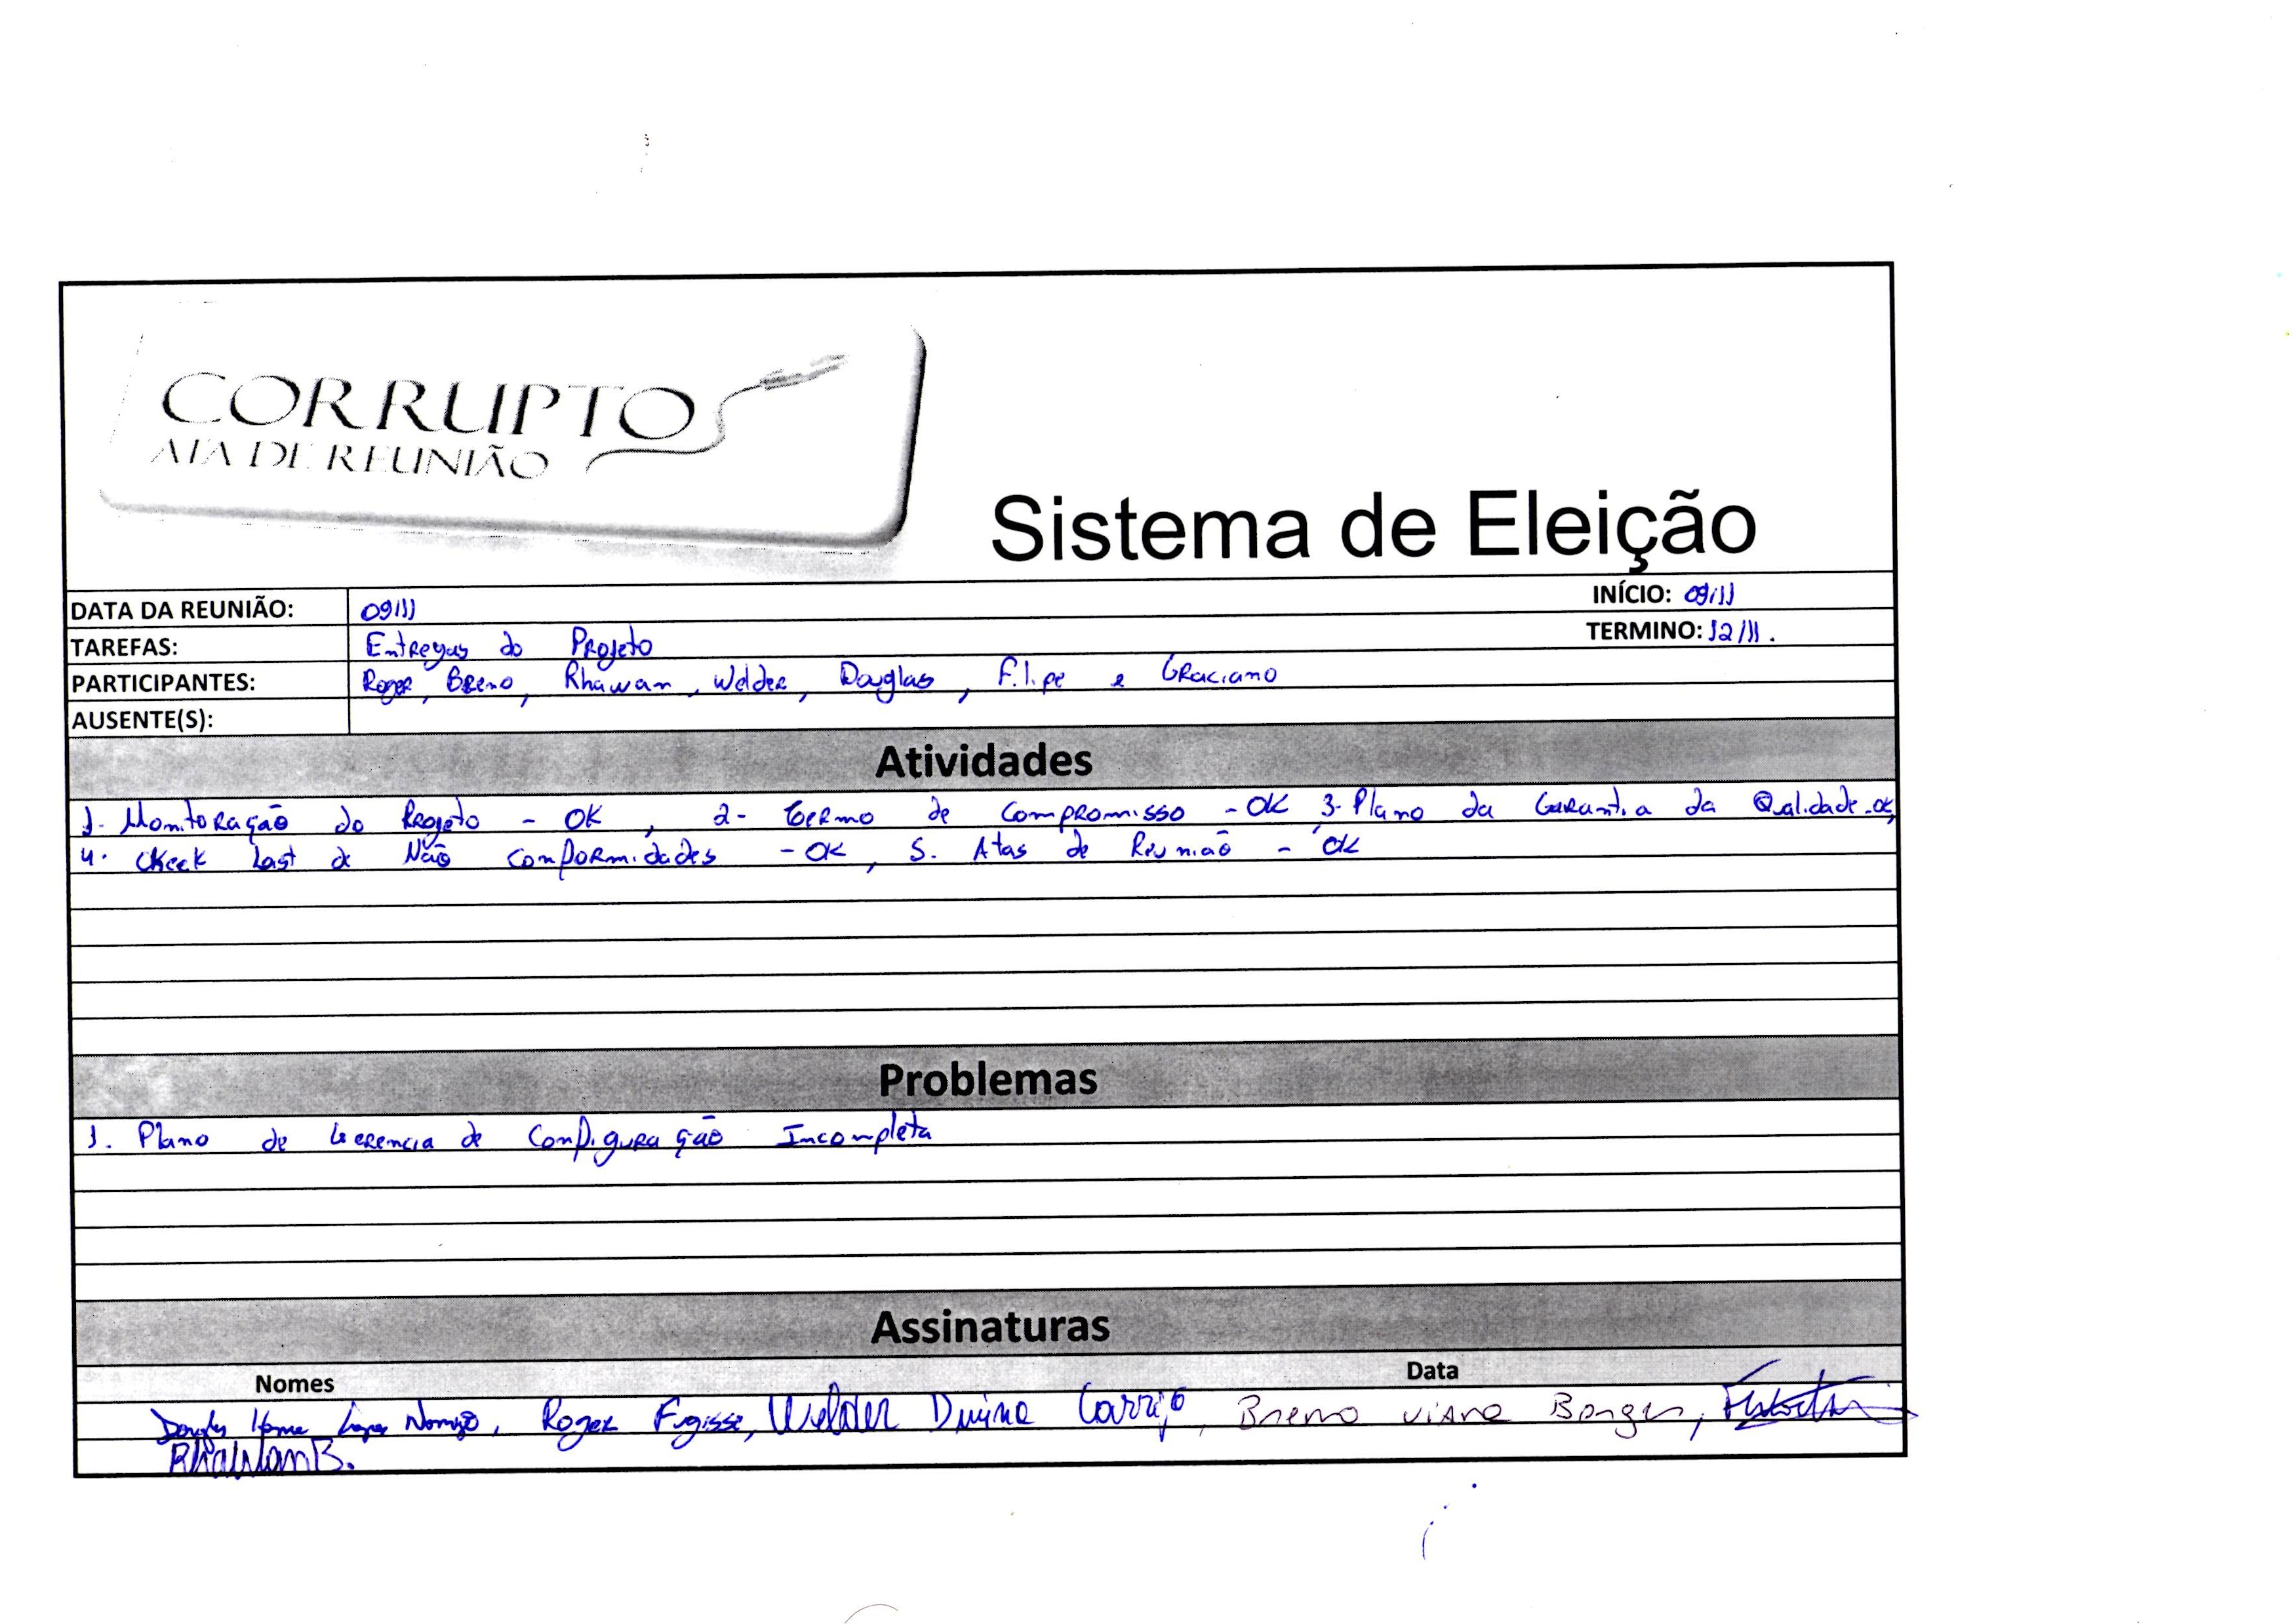 CORRUPTO
ATA DE REUNIÃO
Sistema de Eleição
DATA DA REUNIÃO: 09/11 INÍCIO: 09/11
TAREFAS: Entregas do Projeto TERMINO: 12/11.
PARTICIPANTES: Roger, Breno, Rhawan, Welder, Douglas, Filipe e Graciano
AUSENTE(S):
Atividades
1- Monitoração do Projeto - OK, 2- Termo de Compromisso - OK, 3- Plano da Garantia da Qualidade - OK,
4. Check List de Não Conformidades - OK, 5. Atas de Reunião - OK
Problemas
1. Plano de Gerencia de Configuração Incompleta
Assinaturas
Nomes Data
Roger Fugisse, Welder Divino Carrijo, Breno Viana Borges,
Rhawan B.